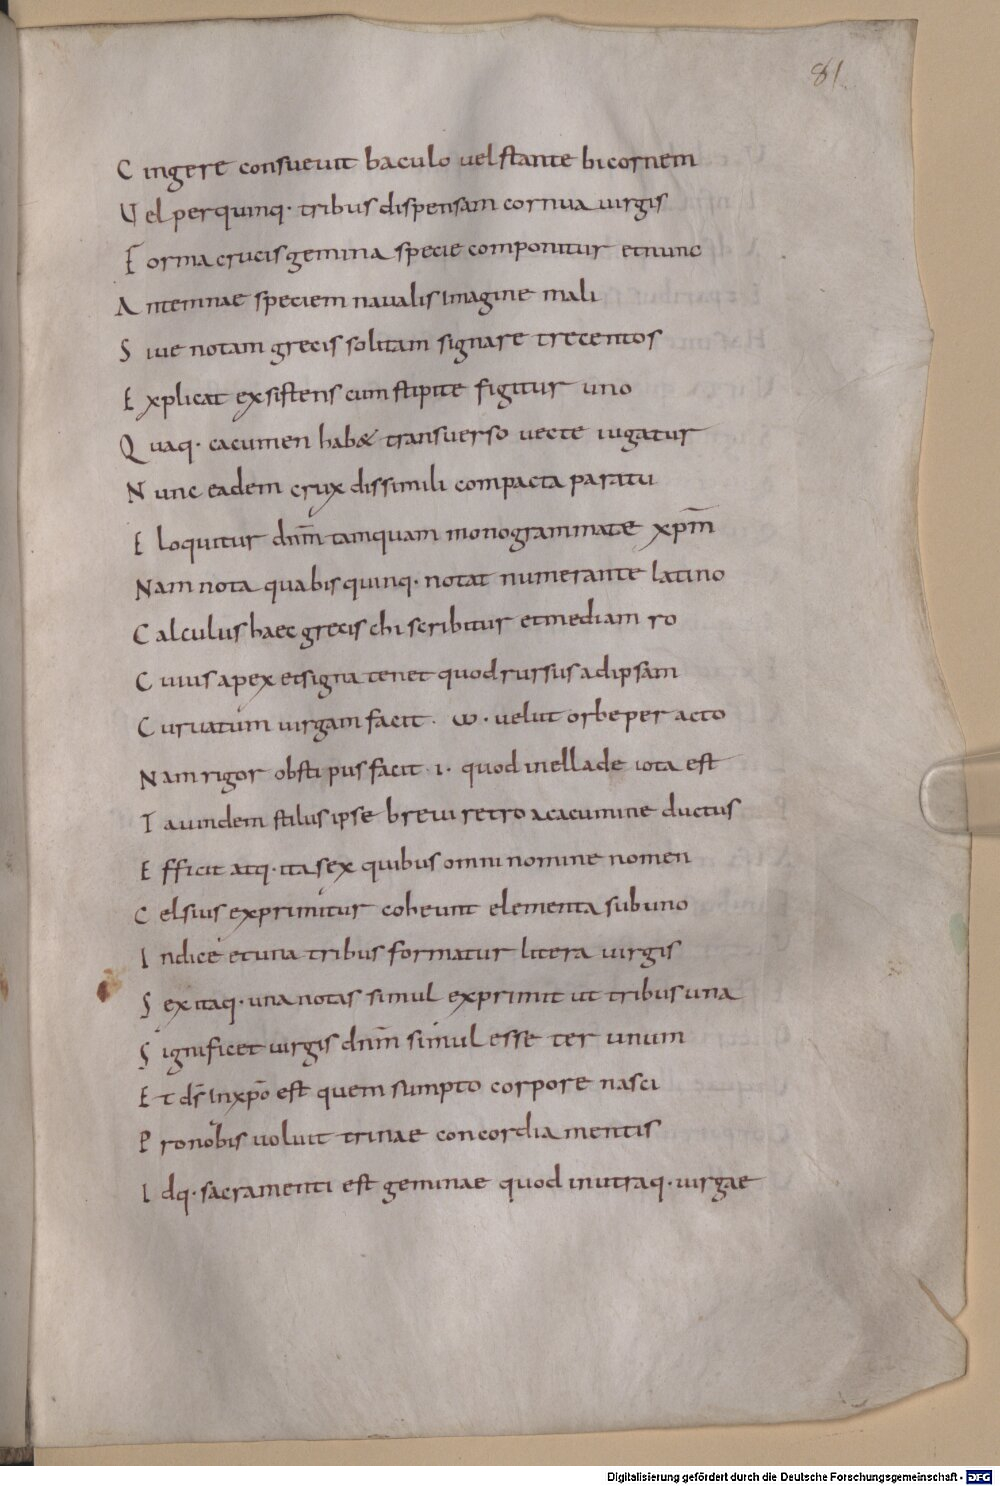 81
Cingere consuevit baculo vel stante bicornem
Vel per quinq· tribus dispensam cornua uirgis
Forma crucis gemina specie componitur et nunc
Antemnae speciem naualis imagine mali
Siue notam grecis solitam signare trecentos
Explicat exsistens cum stipite figitur uno
Quaq· cacumen hab& transuerso uecte iugatur
Nunc eadem crux dissimili compacta paratu
Eloquitur dnm̄ tamquam monogrammate xpm̄
Nam nota qua bis quinq· notat numerante latino
Calculus haec grecis chi scribitur et mediam ro
Cuius apex et signa tenet quod rursus ad ipsam
Curuatum uirgam facit · ω · uelut orbe per acto
Nam rigor obsti pus facit · i · quod in ellade iota est
Tauindem stilus ipse breui retro a cacumine ductus
Efficit atq· ita sex quibus omni nomine nomen
Celsius exprimitur coheunt elementa sub uno
Indice et una tribus formatur litera uirgis
Sex itaq· una notas simul exprimit ut tribus una
Significet uirgis dnm̄ simul esse ter unum
Et ds̄ in xpō est quem sumpto corpore nasci
Pro nobis uoluit trinae concordia mentis
Idq· sacramenti est geminae quod in utraq· uirgae
Digitalisierung gefördert durch die Deutsche Forschungsgemeinschaft - DFG